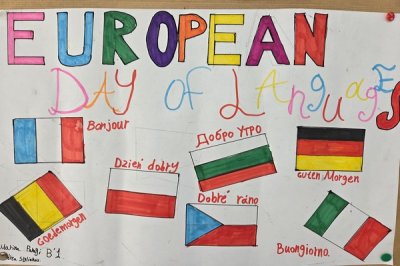 EUROPEAN
DAY OF LANguagES
Bonjour
Добро Утро
Dzień dobry
Guten Morgen
Dobré ráno
Goedemorgen
Buongiorno.
B'1